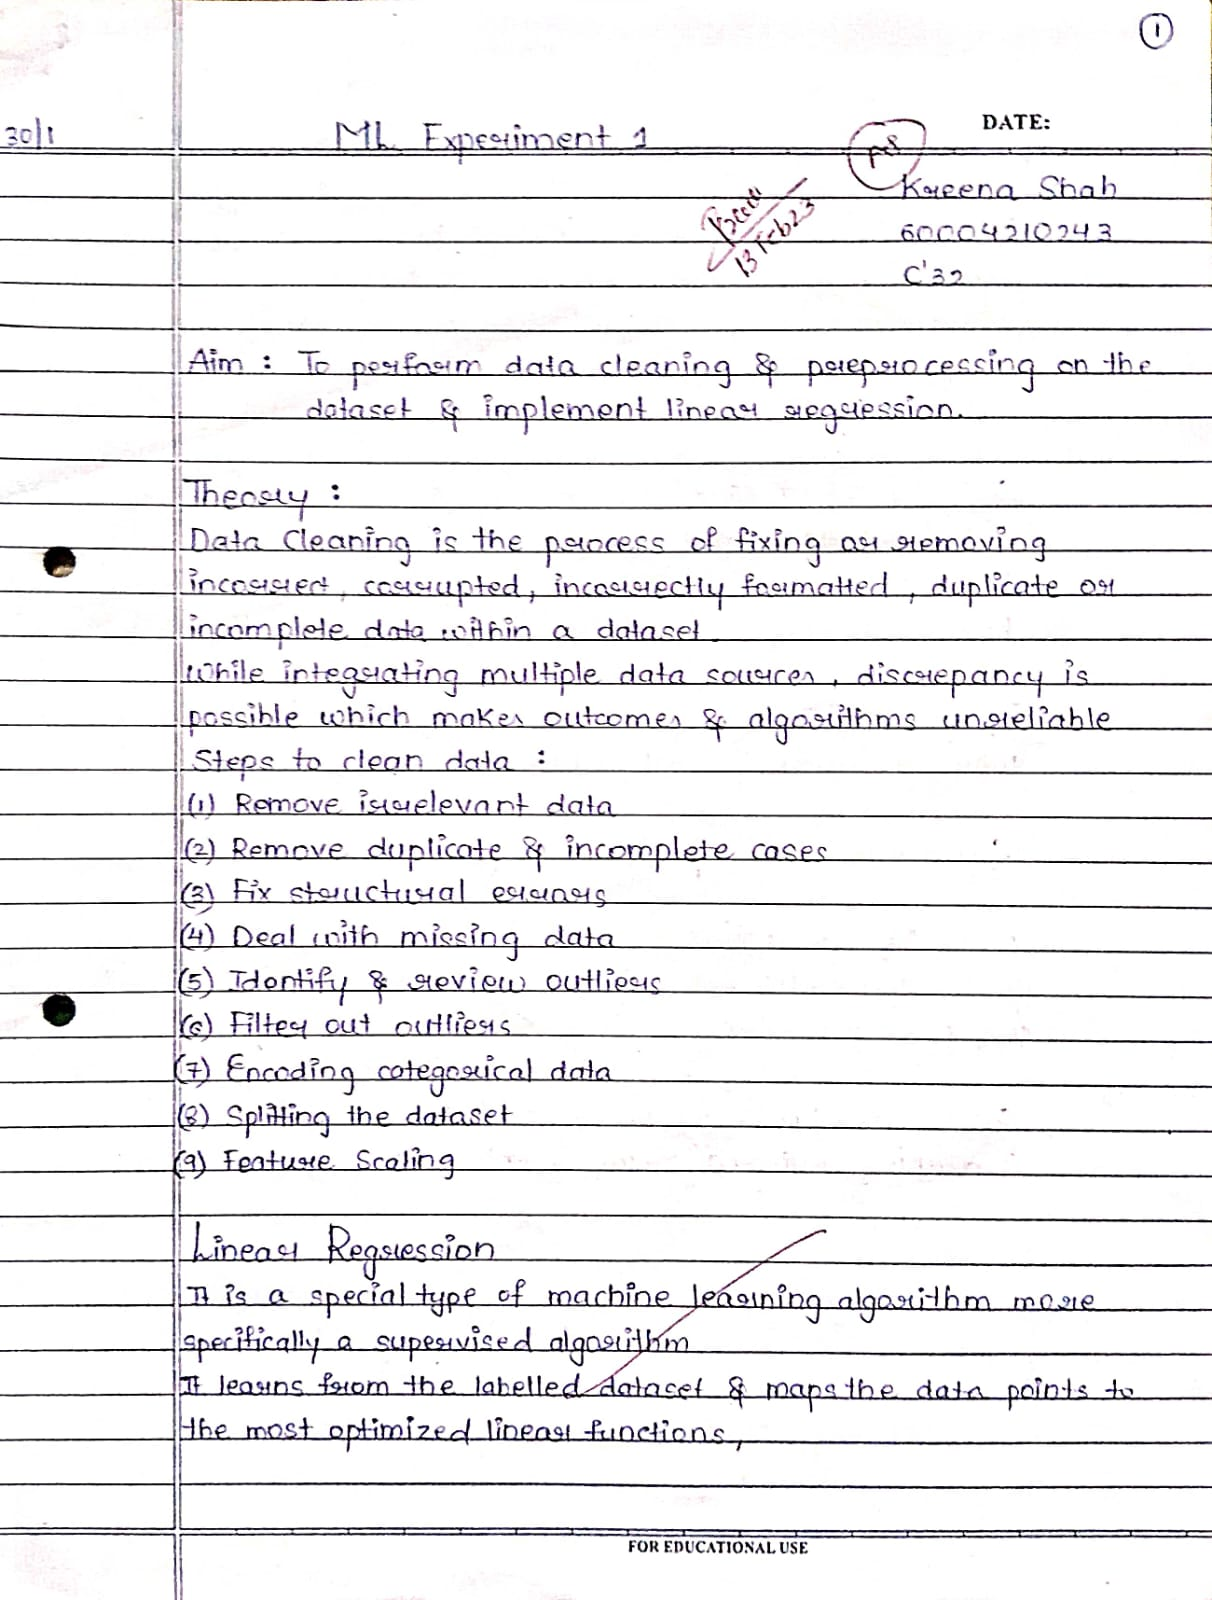 1
30/1
ML Experiment 1
DATE:
Kreena Shah
13 Feb23
60004210243
C'32
Aim : To perform data cleaning & preprocessing on the
dataset & implement linear regression.
Theory :
Data Cleaning is the process of fixing or removing
incorrect, corrupted, incorrectly formatted, duplicate or
incomplete data within a dataset
While integrating multiple data sources, discrepancy is
possible which makes outcomes & algorithms unreliable
Steps to clean data :
(1) Remove irrelevant data
(2) Remove duplicate & incomplete cases
(3) Fix structural errors
(4) Deal with missing data
(5) Identify & review outliers
(6) Filter out outliers
(7) Encoding categorical data
(8) Splitting the dataset
(9) Feature Scaling
Linear Regression
It is a special type of machine learning algorithm more
specifically a supervised algorithm
It learns from the labelled dataset & maps the data points to
the most optimized linear functions,
FOR EDUCATIONAL USE